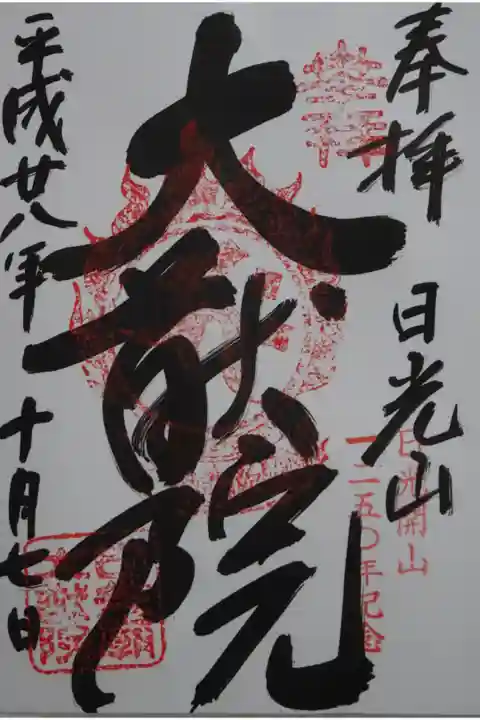 奉拝 日光山
日光開山
一二五〇年紀念
大猷院
平成廿八年 十月七日